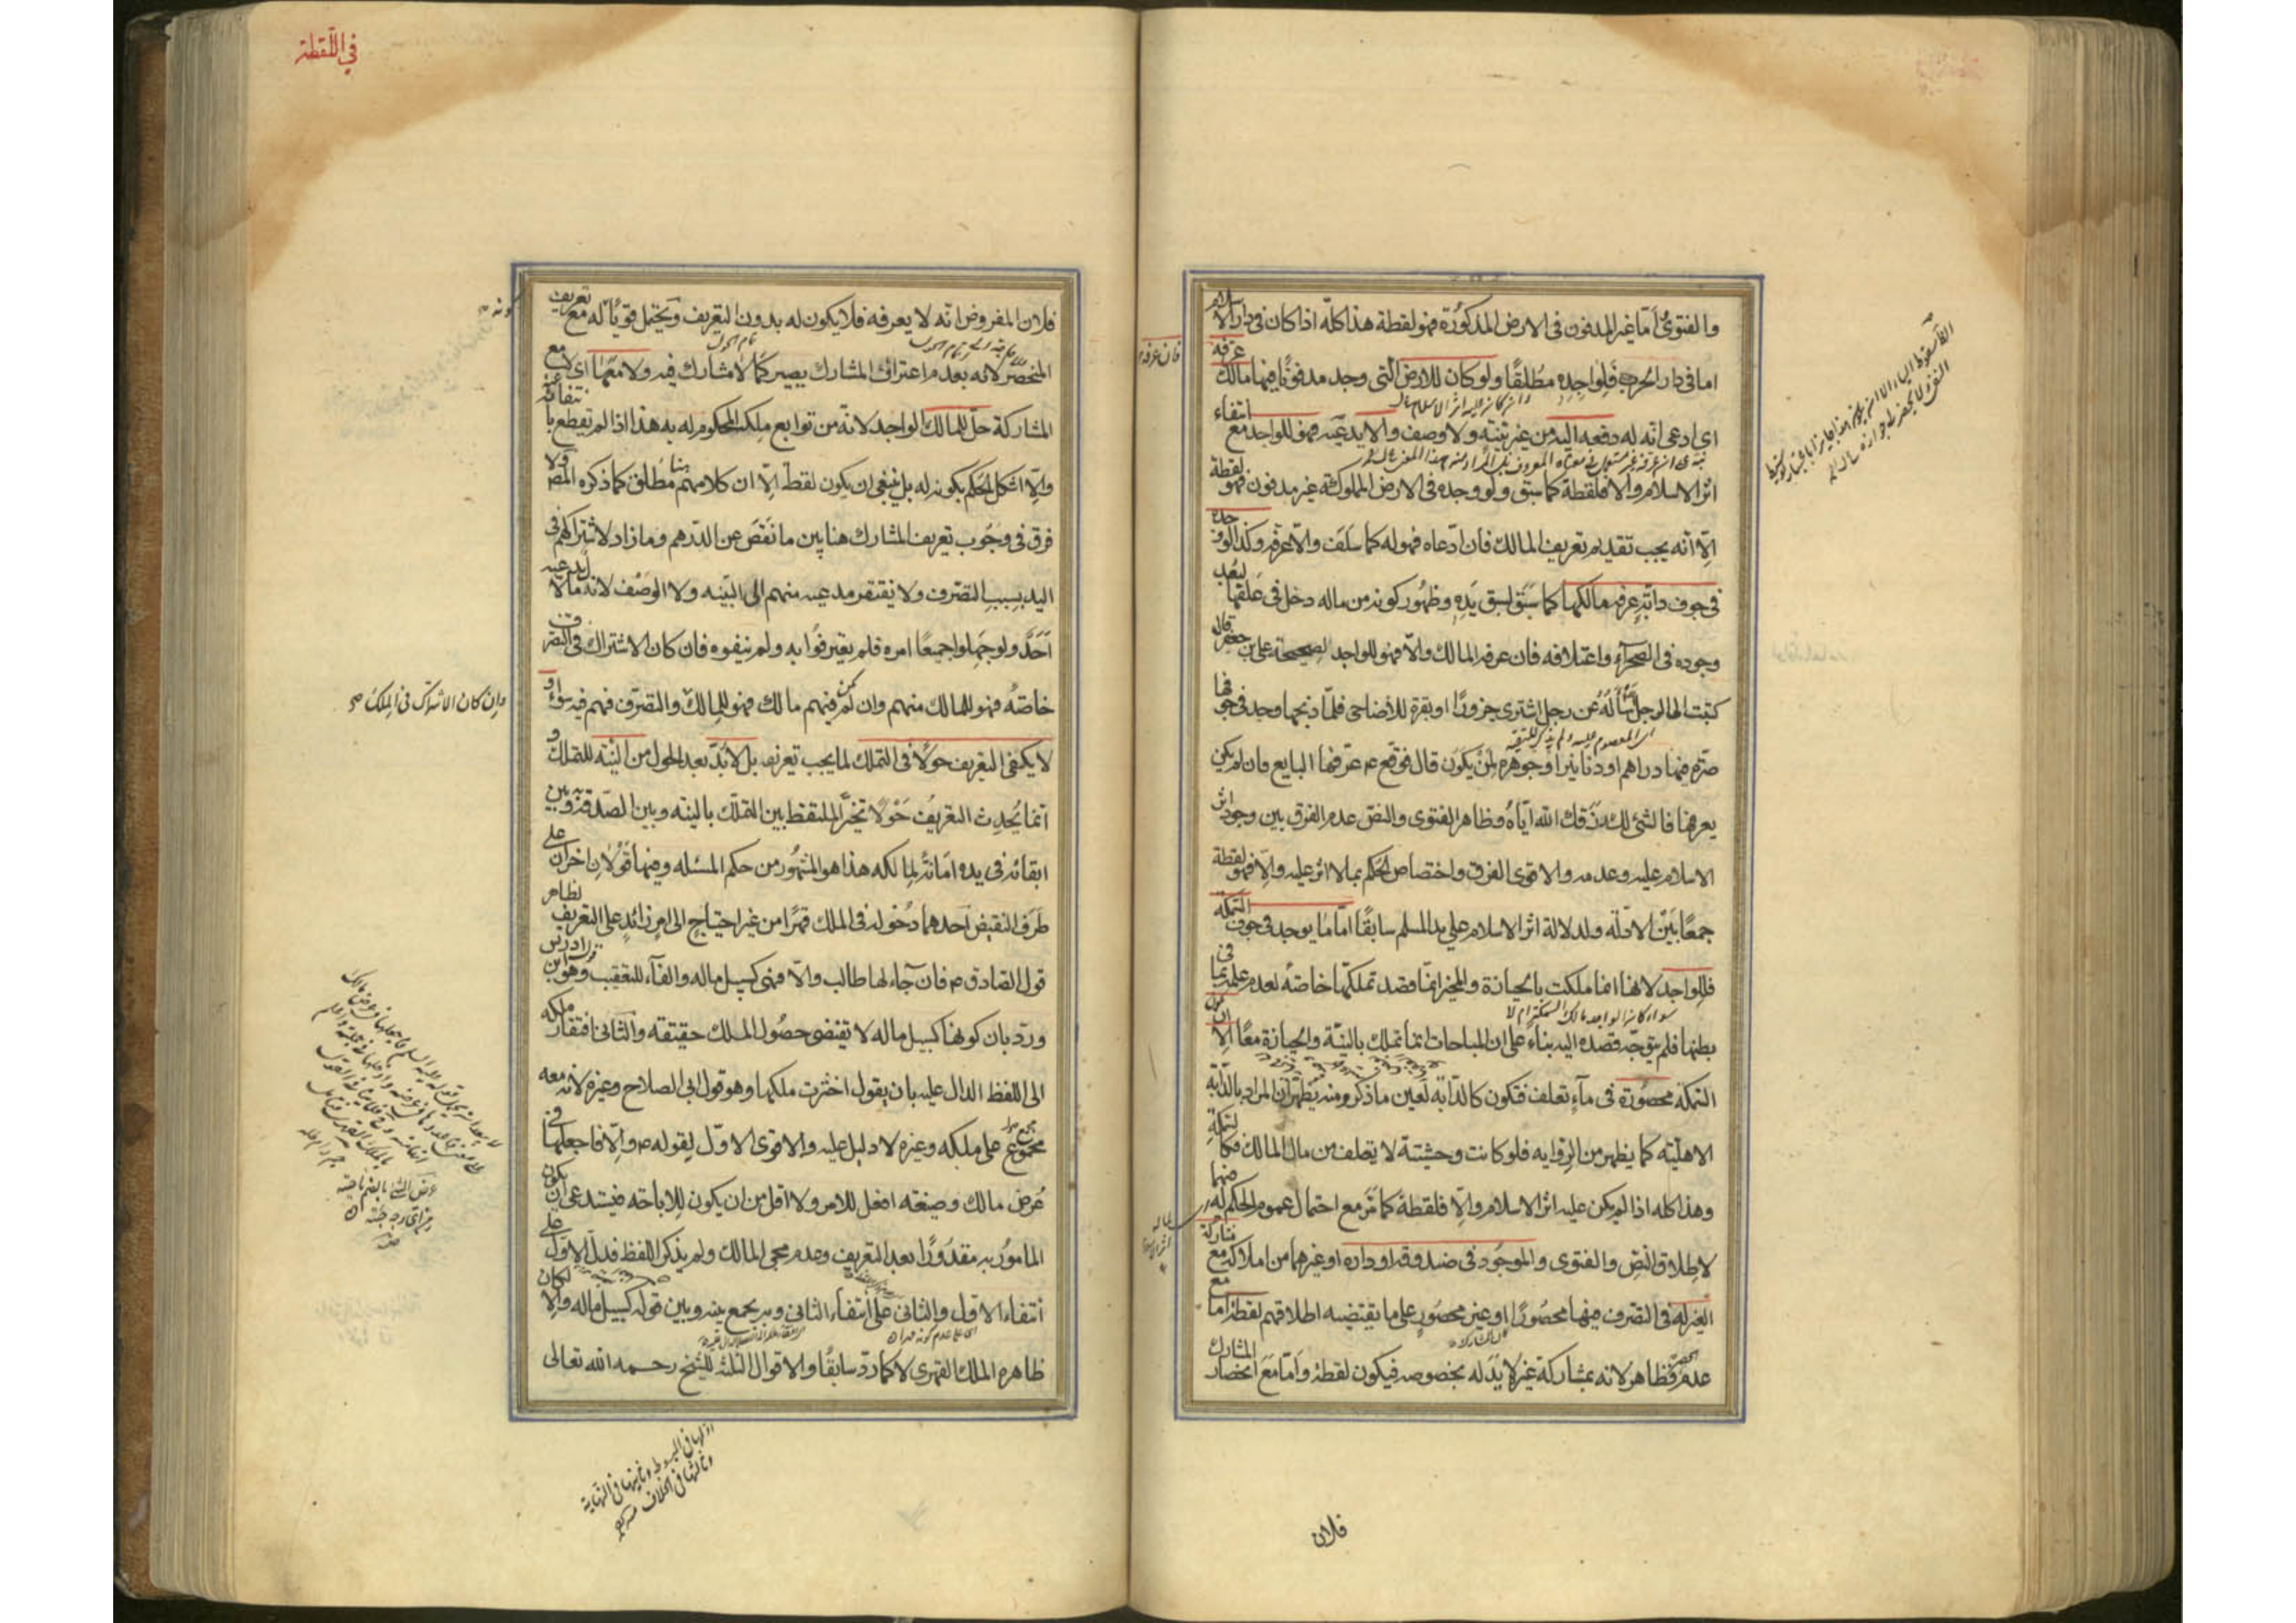 والفتوى أما غير المدفون فى الارض المذكورة فهو لقطة هذا كله اذا كان فى دار الاسلام
اما فى دار الحرب فلواجده مطلقا ولو كان للارض التى وجد مدفونا فيها مالك عرفه
اى ادعى انه له دفعه اليه من غير بينة ولا وصف والا يدعيه فهو للواجد مع انتفاء
اثر الاسلام والا فلقطة كما سبق ولو وجده فى الارض المملوكة غير مدفون فهو لقطة
الا أنه يجب تقديم تعريف المالك فان ادعاه فهو له كما سلف والا عرفه وكذا لو وجده
فى جوف دابة عرفه مالكها كما سبق لسبق يده وظهور كونه من ماله دخل فى علفها لبعد
وجوده فى الصحراء واعتلافه فان عرفه المالك والا فهو للواجد لصحيحة على بن جعفر قال
كتبت الى الرجل أسأله عن رجل اشترى جزورا او بقرة للأضاحى فلما ذبحها وجد فى جوفها
صرة فيها دراهم او دنانير او جوهرة لمن يكون قال فوقع ع عرفها البايع فان لم يكن
يعرفها فالشئ لك رزقك الله اياه وظاهر الفتوى والنص عدم الفرق بين وجود اثر
الاسلام عليه وعدمه والاقوى الفرق واختصاص الحكم بما لا اثر عليه والا فهو لقطة
جمعا بين الادلة ولدلالة اثر الاسلام على يد المسلم سابقا اما ما يوجد فى جوف السمكة
فللواجد لانها انما ملكت بالحيازة والمحيز انما قصد تملكها خاصة لعدم علمه بما فى
بطنها فلم يتوجه قصده اليه بناء على ان المباحات انما تملك بالنية والحيازة معا الا ان تكون
السمكة محصورة فى ماء تعلف فتكون كالدابة لعين ما ذكر ومنه يظهر ان المراد بالدابة
الاهلية كما يظهر من الرواية فلو كانت وحشية لا يعتلف من مال المالك فكالسمكة
وهذا كله اذا لم يكن عليه اثر الاسلام والا فلقطة كما مر مع احتمال عموم الحكم فيهما له
لاطلاق النص والفتوى والموجود فى صندوقه او داره او غيرهما من املاكه مع مشاركة
الغير له فى التصرف فيها محصورا او غير محصور على ما يقتضيه اطلاقهم لقطة اما مع
عدم الحصر فظاهر لانه بمشاركة غيره لا يد له بخصوصه فيكون لقطة واما مع انحصار المشارك
فلان
فان عرفه
فى اللقطة
فلان المفروض انه لا يعرفه فلا يكون له بدون التعريف ويحتمل قويا له مع تعريف
المنحصر لانه بعدم اعتراف المشارك يصير كما لا مشارك فيه ولا معها اى لا مع
المشاركة حل للمالك الواجد لانه من توابع ملكه المحكوم له به هذا اذا لم يقطع بانتفائه عنه
والا اشكل الحكم بكونه له بل ينبغى ان يكون لقطة الا ان كلامهم هنا مطلق كما ذكره المص ولا
فرق فى وجوب تعريف المشارك هنا بين ما نقص عن الدرهم وما زاد لاشتراكهم فى
اليد بسبب التصرف ولا يفتقر مدعيه منهم الى البينة ولا الوصف لانه مال لا يدعيه
أحد ولو جهلوا جميعا امره فلم يعترفوا به ولم ينفوه فان كان الاشتراك فى التصرف
خاصة فهو للمالك منهم وان لم يكن فيهم مالك فهو للمالك والمتصرف فهم فيه سواء و
لا يكفى التعريف حولا فى التملك لما يجب تعريفه بل لا بد بعد الحول من النية للتملك و
انما يحدث التعريف حولا تخير الملتقط بين التملك بالنية وبين الصدقة به وبين
ابقائه فى يده امانة لمالكه هذا هو المشهور من حكم المسئلة وفيها قولان اخران على
طرف النقيض احدهما دخوله فى الملك قهرا من غير احتياج الى امر زائد على التعريف لظاهر
قول الصادق ع فان جاء لها طالب والا فهى كسبيل ماله والفاء للتعقيب وهو قول ابن ادريس
ورد بان كونها كسبيل ماله لا تقتضى حصول الملك حقيقة والثانى افتقار ملكه
الى اللفظ الدال عليه بان يقول اخترت ملكها وهو قول ابى الصلاح وغيره لانه معه
مجمع على ملكه وغيره لا دليل عليه والاقوى الاول لقوله ع والا فاجعلها فى
عرض مالك وصيغة افعل للامر ولا اقل من ان يكون للاباحة فيستدعى ان يكون
المامور به مقدورا بعد التعريف وعدم مجئ المالك ولم يذكر اللفظ فدل الاول على
انتفاء الاول والثانى على انتفاء الثانى وبه يجمع بينه وبين قوله كسبيل ماله والا لكان
ظاهره الملك القهرى لا كما رد سابقا والاقوال الثلثة للشيخ رحمه الله تعالى
وان كان الاشتراك فى الملك صح
اولها فى المبسوط وثانيها فى النهاية
وثالثها فى الخلاف